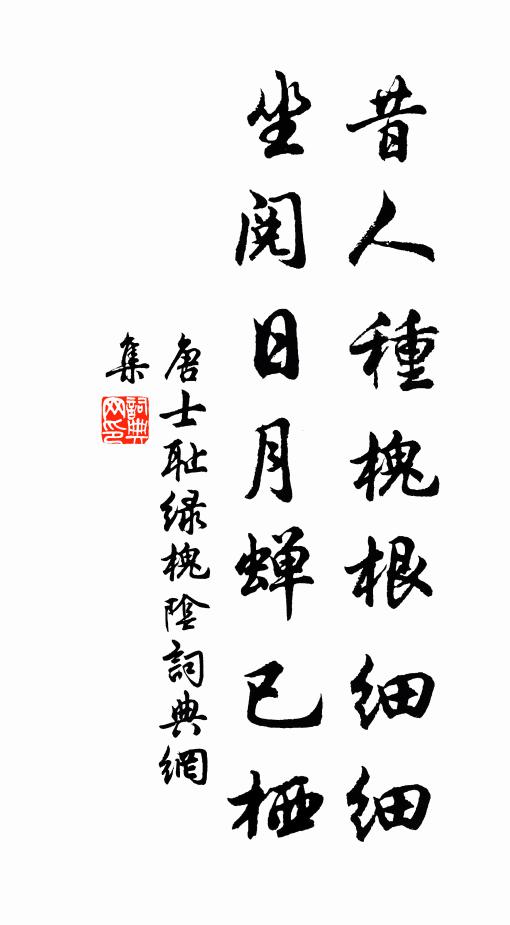 昔人種槐根細細
坐閱日月蟬已栖
唐士耻綠槐陰詞典網
集
詞典網印